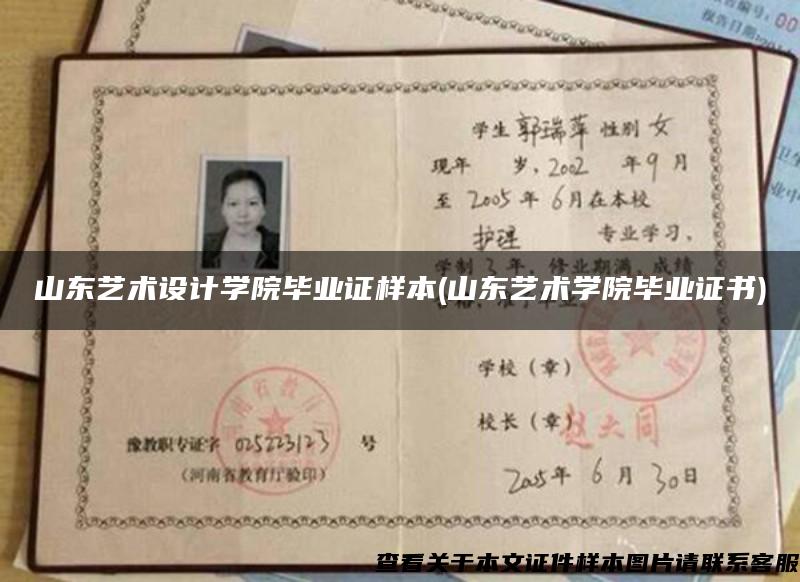 报告编号:00
报告日期
学生 郭瑞萍 性别 女
现年 岁,2002 年 9 月
至 2005 年 6 月在本校
护理 专业学习,
学制 3 年 修业期满,成绩
山东艺术设计学院毕业证样本(山东艺术学院毕业证书)
学校(章)
校长(章) 赵大同
豫教职专证字 025223123 号
(河南省教育厅验印)
2005 年 6 月 30 日
查看关于本文证件样本图片请联系客服